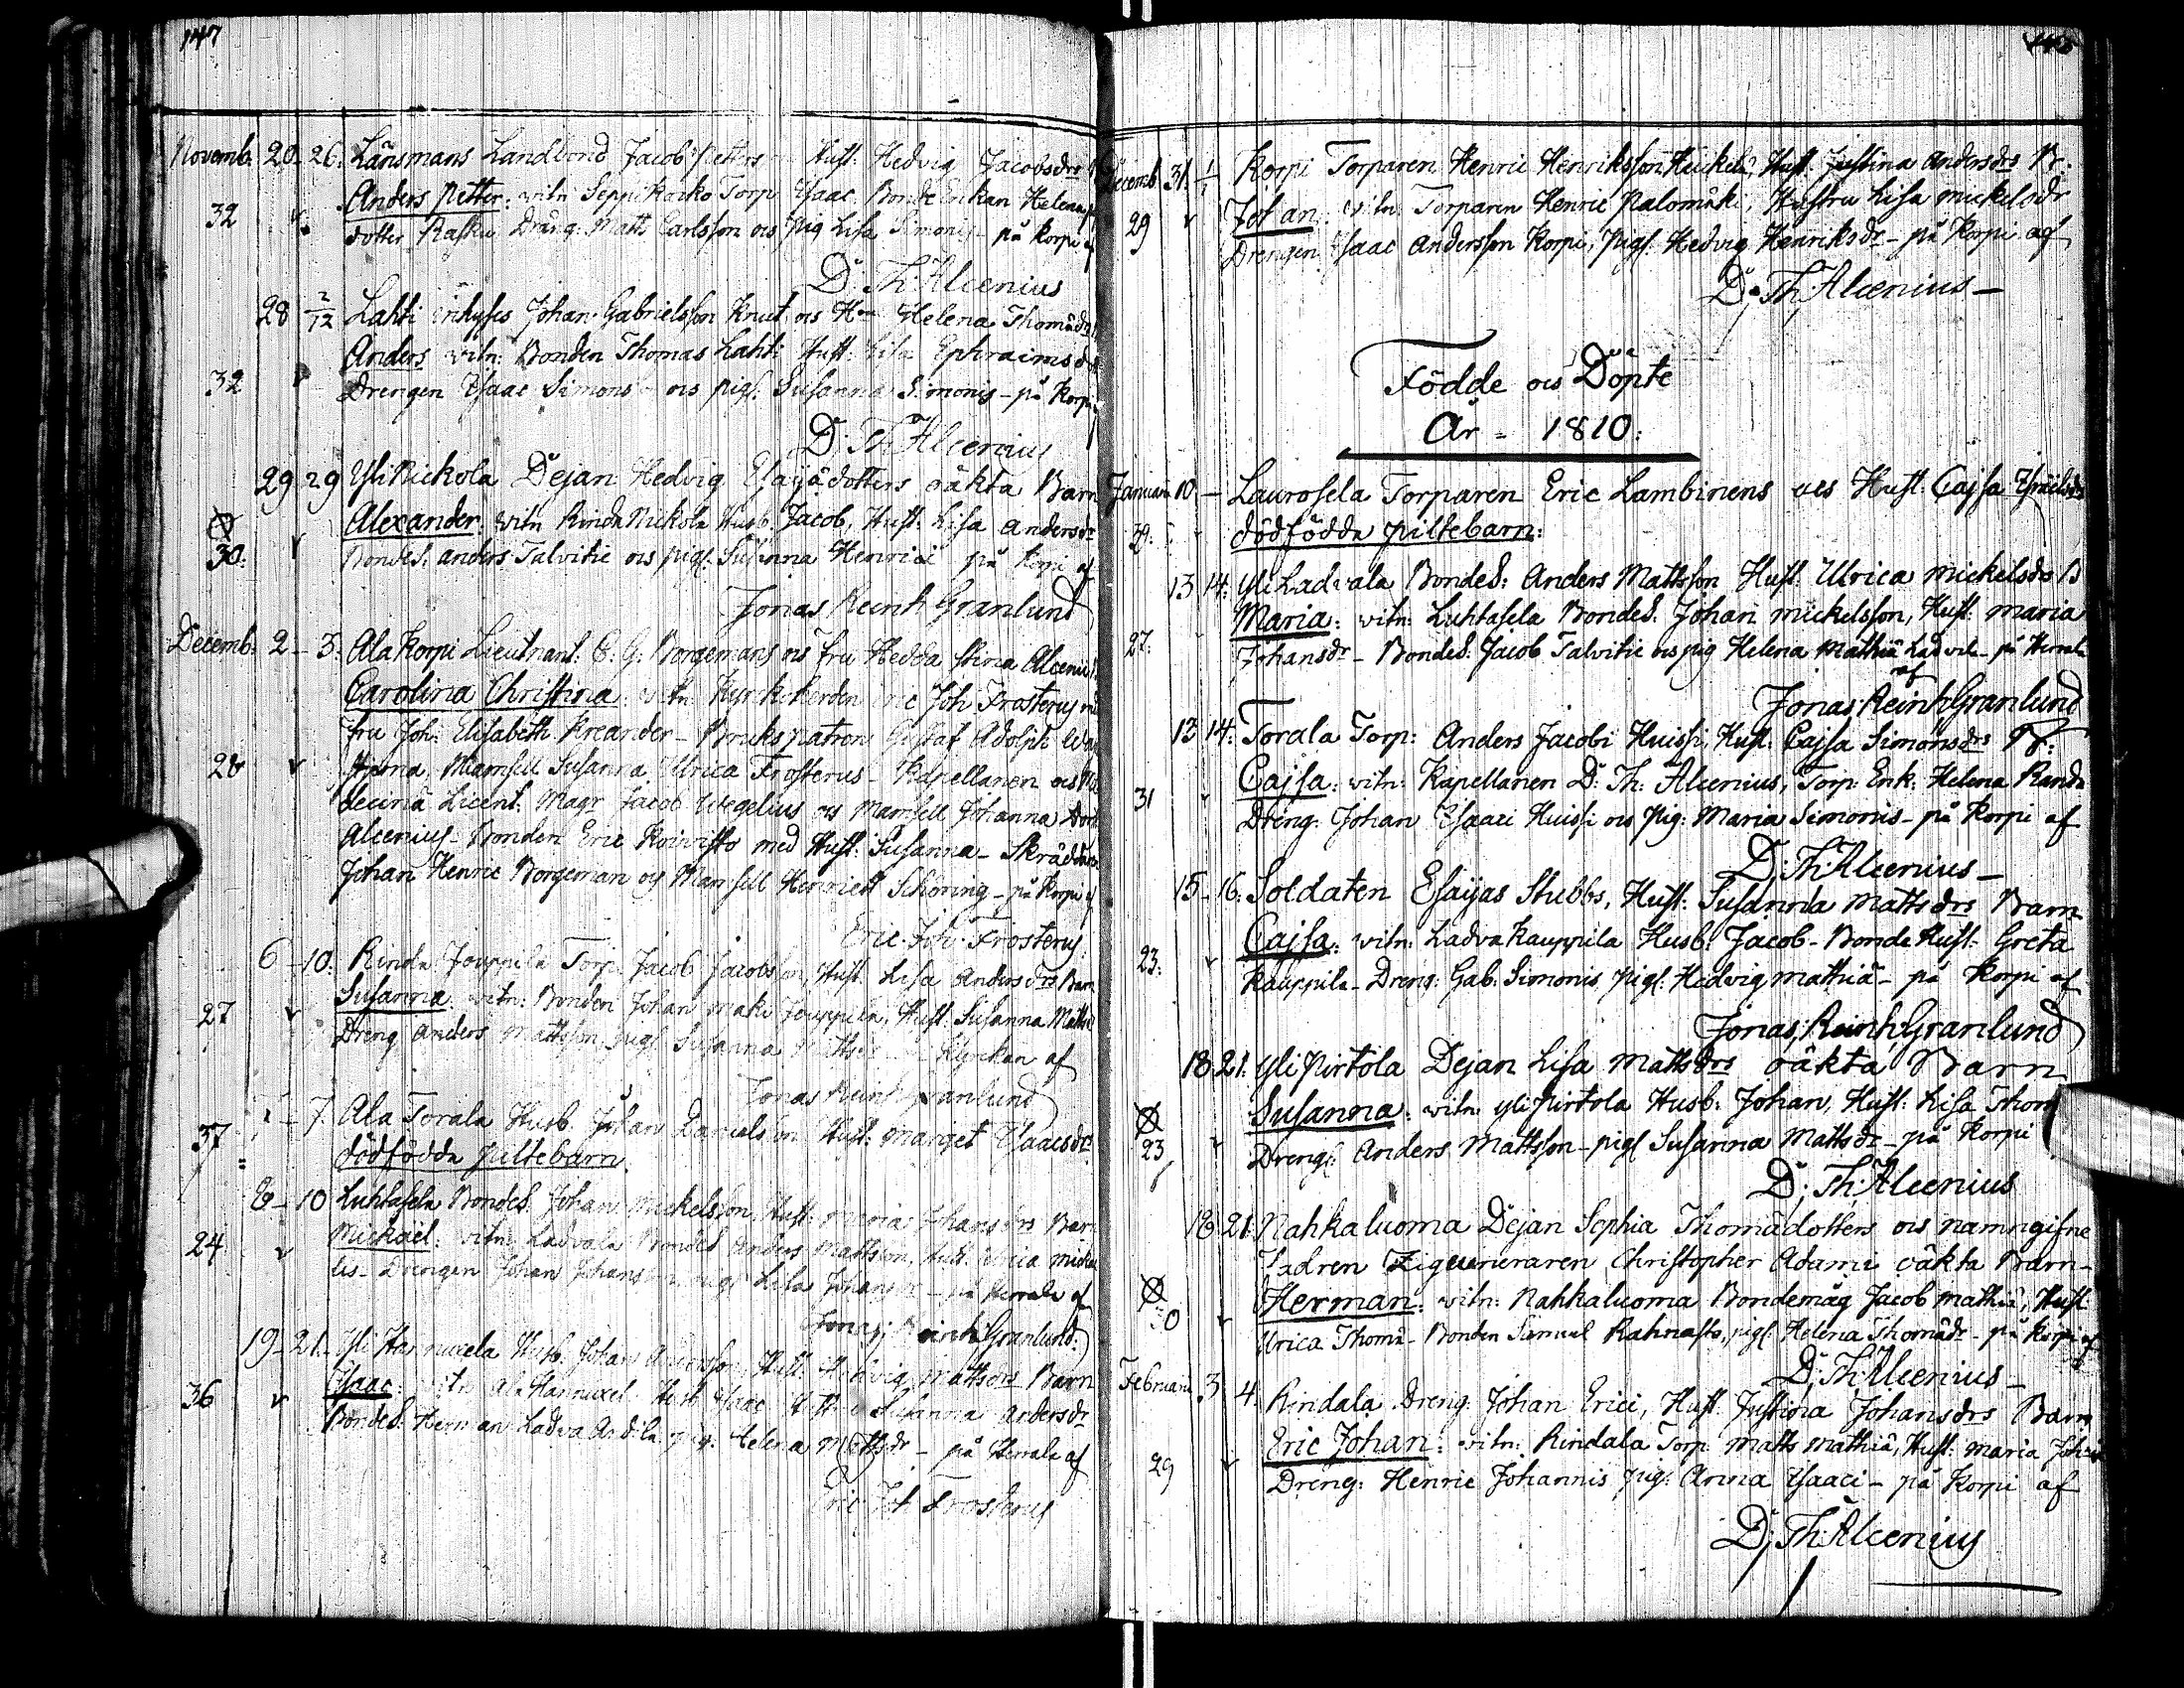 147
Novemb: 20-26. Länsmans Landbond Jacob Petters Hust: Hedvig Jacobsdrs
32 v Anders Petter: witn Seppikarko Torp Isaac. Bonde Enkan Helena
dotter Rasku Dräng: Matt Carlsson ois pig Lisa Simonis – på korpi af
D: Th: Alcenius
28 2/12 Lahti inhyses Johan Gabrielsson Knut ois Helena Thomædr
Anders witn: Bonden Thomas Lahti Hust: Lisa Ephraims
32 v Drengen Isaac Simons – ois pig: Susanna Simonis – på Korpi
D: Th Alcenius
29 29 Yli Nickola Dejan Hedvig Esaiædotters oäkta Barn
Alexander: witn Rinda Nickola Husb: Jacob, Hust: Lisa Andersdr
30: v Bondes: Anders Talvitie ois pig: Susanna Henrici på Korpi af
Jonas Reinh Granlund
Decemb: 2-3: Ala Korpi Lieutnant: C: G: Borgemans ois fru Hedda Stina Alcenius
Carolina Christina: witn Kyrkoherden Eric Joh Frosterus
fru Joh: Elisabeth Kreander – Brukspatron Gustaf Adolph
28 v Mamsell Susanna Ulrica Frosterus – Kapellanen ois
Licent: Magr Jacob Wegelius ois Mamsell Johanna
Alcenius – Bonden Eric Koivisto med Hust: Susanna – Skräddaren
Johan Henric Borgeman ois Mamsell Henriett Schöring – på Korpi af
Eric Joh: Frosterus
6-10: Rinda Jouppila Torp: Jacob Jacobsson, Hust: Lisa Andersdrs Barn
Susanna: witn: Bonden Johan Maki Jouppila, Hust: Susanna Matts
27 v Dreng Anders Mattsson pig: Susanna Mattsdr Kyrckan af
Jonas Reinh Granlund
7- 7 Ala Torala Husb: Johan Danielsson Hust: Marget Isaacsdr
37 dödfödda Piltebarn
8-10 Luhtasela Bondes: Johan Mickelsson Hust: Maria Johansdrs Barn
Mickael: witn Ladvala Bondes Anders Mattsson, Hust: Ulrica
24 v Drengen Johan Johansson pig: Lisa Johansdr – på Herrala af
Jonas Reinh Granlund:
19-21. Yli Hannuxela Husb: Johan Andersson, Hust: Hedvig Mattsdrs Barn
Isaac: witn Ala Hannuxel Husb Isaac Hust: Susanna Andersdr
36 v Bondes: Herman Ladva Andila pig: Helena Mattsdr – på Herrala af
Eric Joh Frosterus
Decemb 31. 1/1 Korpi Torparen Henric Henriksson Huckela, Hust: Justina Andersdrs B:
29 v Johan: witn: Torparen Henric Palomäki, Hustru Lisa Mickelsdr
Drengen Isaac Andersson Korpi, Pig: Hedvig Henriksdr – på Korpi af
D: Th Alcenius –
Födde ois Döpte
År – 1810:
Januarii 10 – Laurosela Torparen Eric Lambinens ois Hust: Cajsa Israelsdrs
dödfödda piltebarn:
13 14: Yli Ladvala Bondes: Anders Mattsson Hust: Ulrica Mickelsdrs B
Maria: witn: Luhtasela Bondes: Johan Mickelsson, Hust: Maria
27: Johansdr – Bondes: Jacob Talvitie ois pig Helena Mathiæ Ladvala – på Herrala
af
Jonas Reinh Granlund
13 14: Torala Torp: Anders Jacobi Huissi, Hust: Cajsa Simonsdrs B:
Cajsa: witn: Kapellanen D: Th: Alcenius, Torp: Enk: Helena Randa
31 v Dreng: Johan Isaaci Huissi ois Pig: Maria Simonis – på Korpi af
D: Th: Alcenius –
15-16: Soldaten Esaijas Stubbs, Hust: Susanna Mattsdrs Barn
Cajsa: witn: Ladva Kauppila Husb: Jacob – Bonde Hust: Greta
23: v Kauppila – Dreng: Gab: Simonis pig: Hedvig Mathiæ – på Korpi af
Jonas Reinh: Granlund
18 21: Yli Pirtola Dejan Lisa Mattsdrs oäkta Barn
Susanna: witn: Yli Pirtola Husb: Johan, Hust: Lisa Thom
23 v Dreng: Anders Mattsson – pig: Susanna Mattsdr – på Korpi
D: Th: Alcenius
18 21: Nahkaluoma Dejan Sophia Thomædotters ois namngifne
Fadren Zigeuneraren Christopher Adami oäkta Barn –
Herman: witn: Nahkaluoma Bondemåg Jacob Mathiæ, Hust:
v Ulrica Thomæ – Bonden Samuel Rahnasto, pig: Helena Thomædr – på Korpi af
D: Th: Alcenius –
Februarii 3 4: Rindala Dreng Johan Erici, Hust: Justina Johansdrs Barn
Eric Johan: witn: Rindala Torp: Matts Mathiæ, Hust: Maria
29 v Dreng: Henric Johannis pig: Anna Isaaci – på Korpi af
D: Th: Alcenius